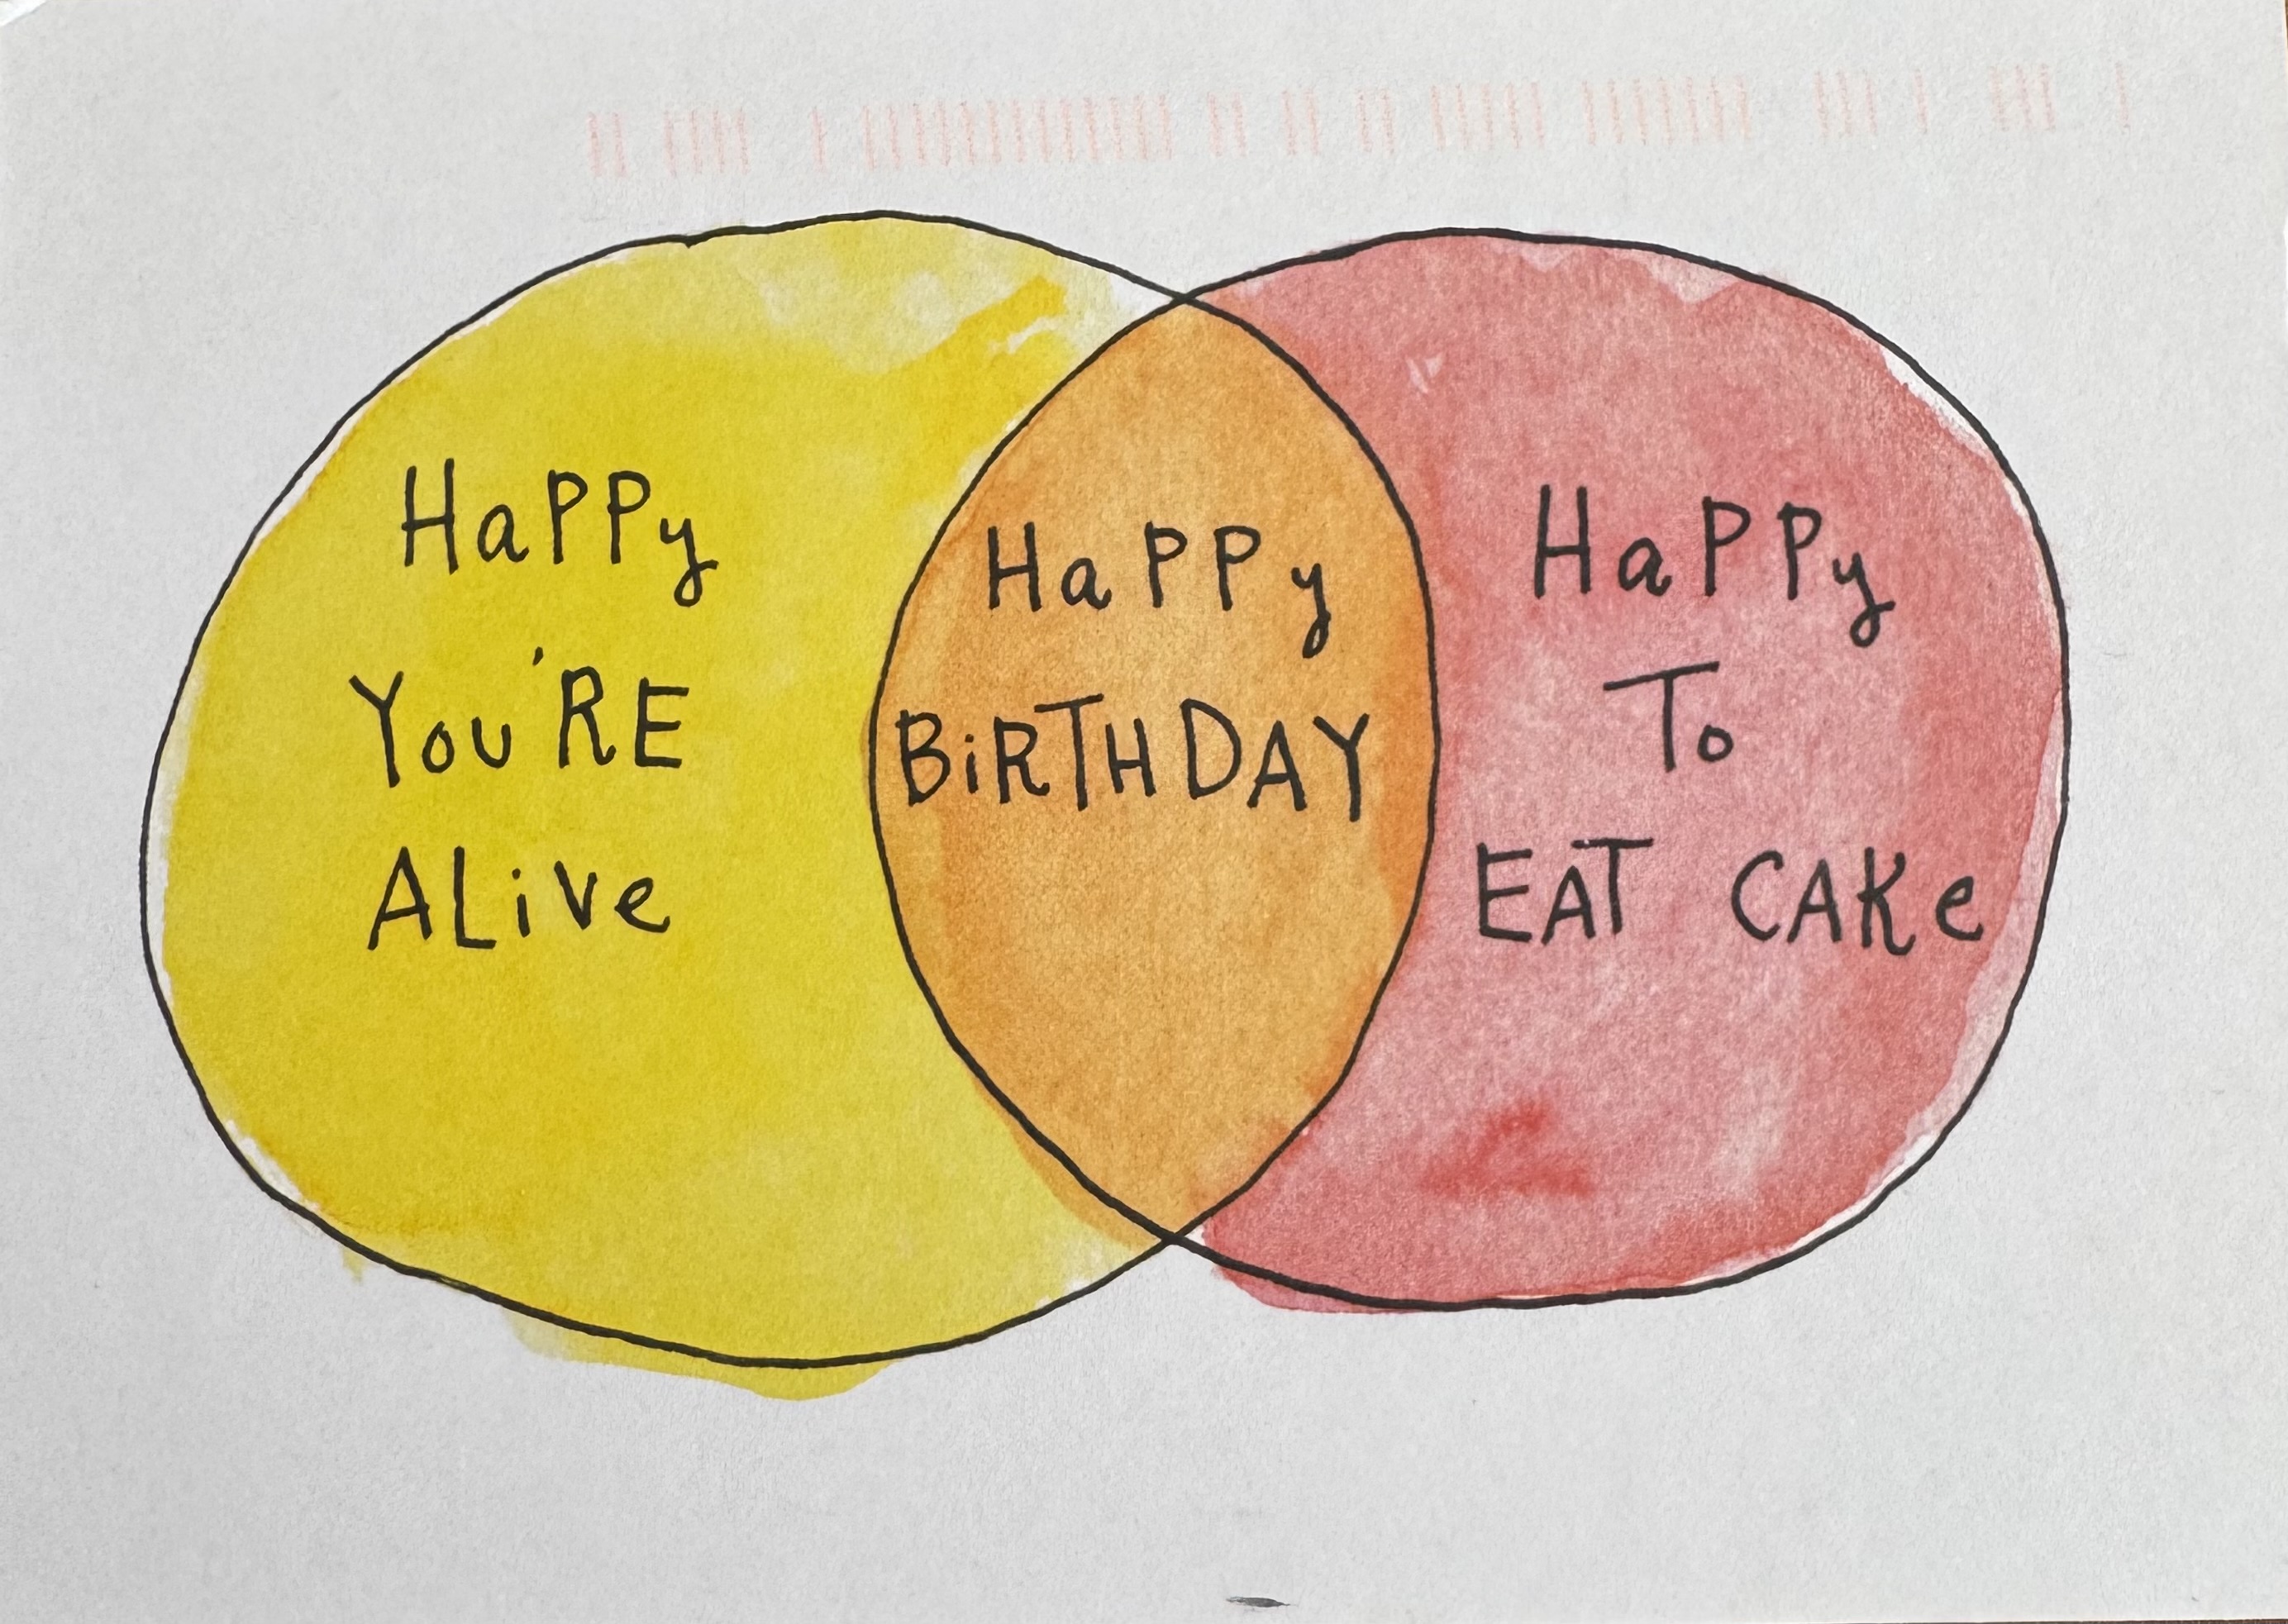 HaPPy
You'RE
ALive
HaPPy
BiRTHDAY
HaPPy
To
EAT CAKe